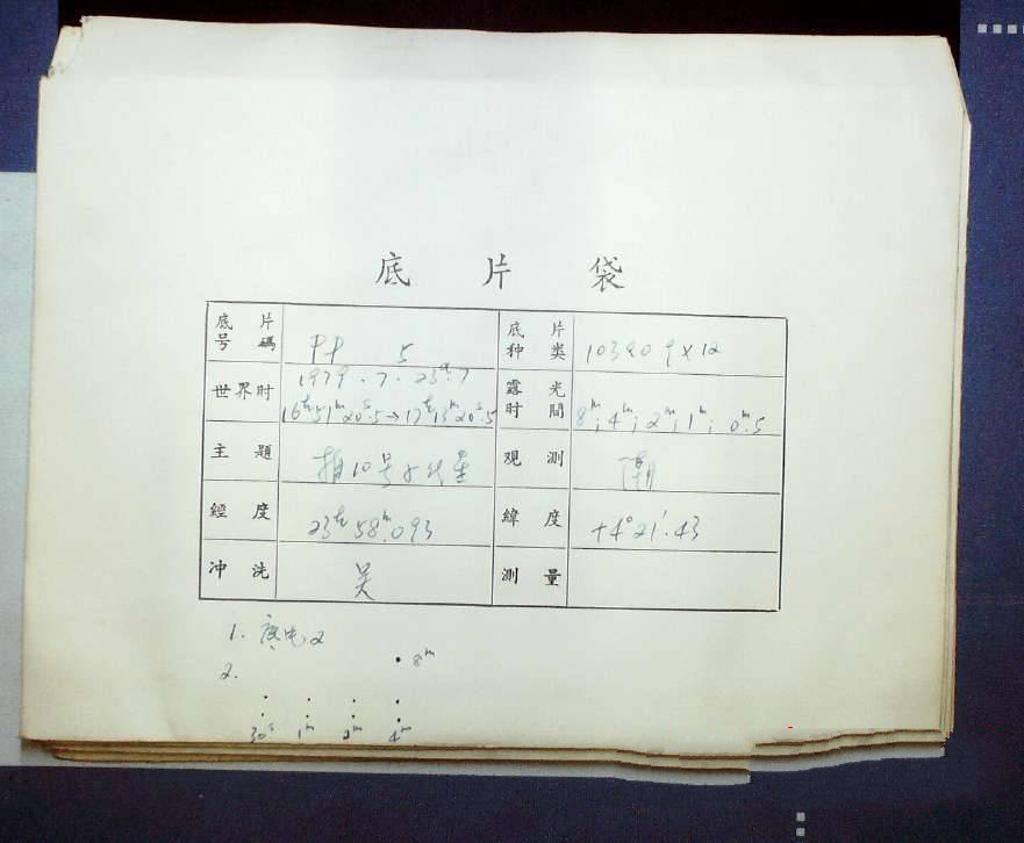 底 片 袋
底 片 号 碼 PP 5 底 片 种 类 103a0 9×12
世界时 1979.7.23ᵈ.7
16ʰ51ᵐ20ˢ.5→17ʰ13ᵐ20ˢ.5 露 光 时 間 8ᵐ; 4ᵐ; 2ᵐ; 1ᵐ; 0ᵐ.5
主 題 10号 星 观 测
經 度 23ʰ58ᵐ.093 緯 度 +4°21′.43
冲 洗 吴 測 量
1.
2. 8ᵐ
30ˢ 1ᵐ 2ᵐ 4ᵐ